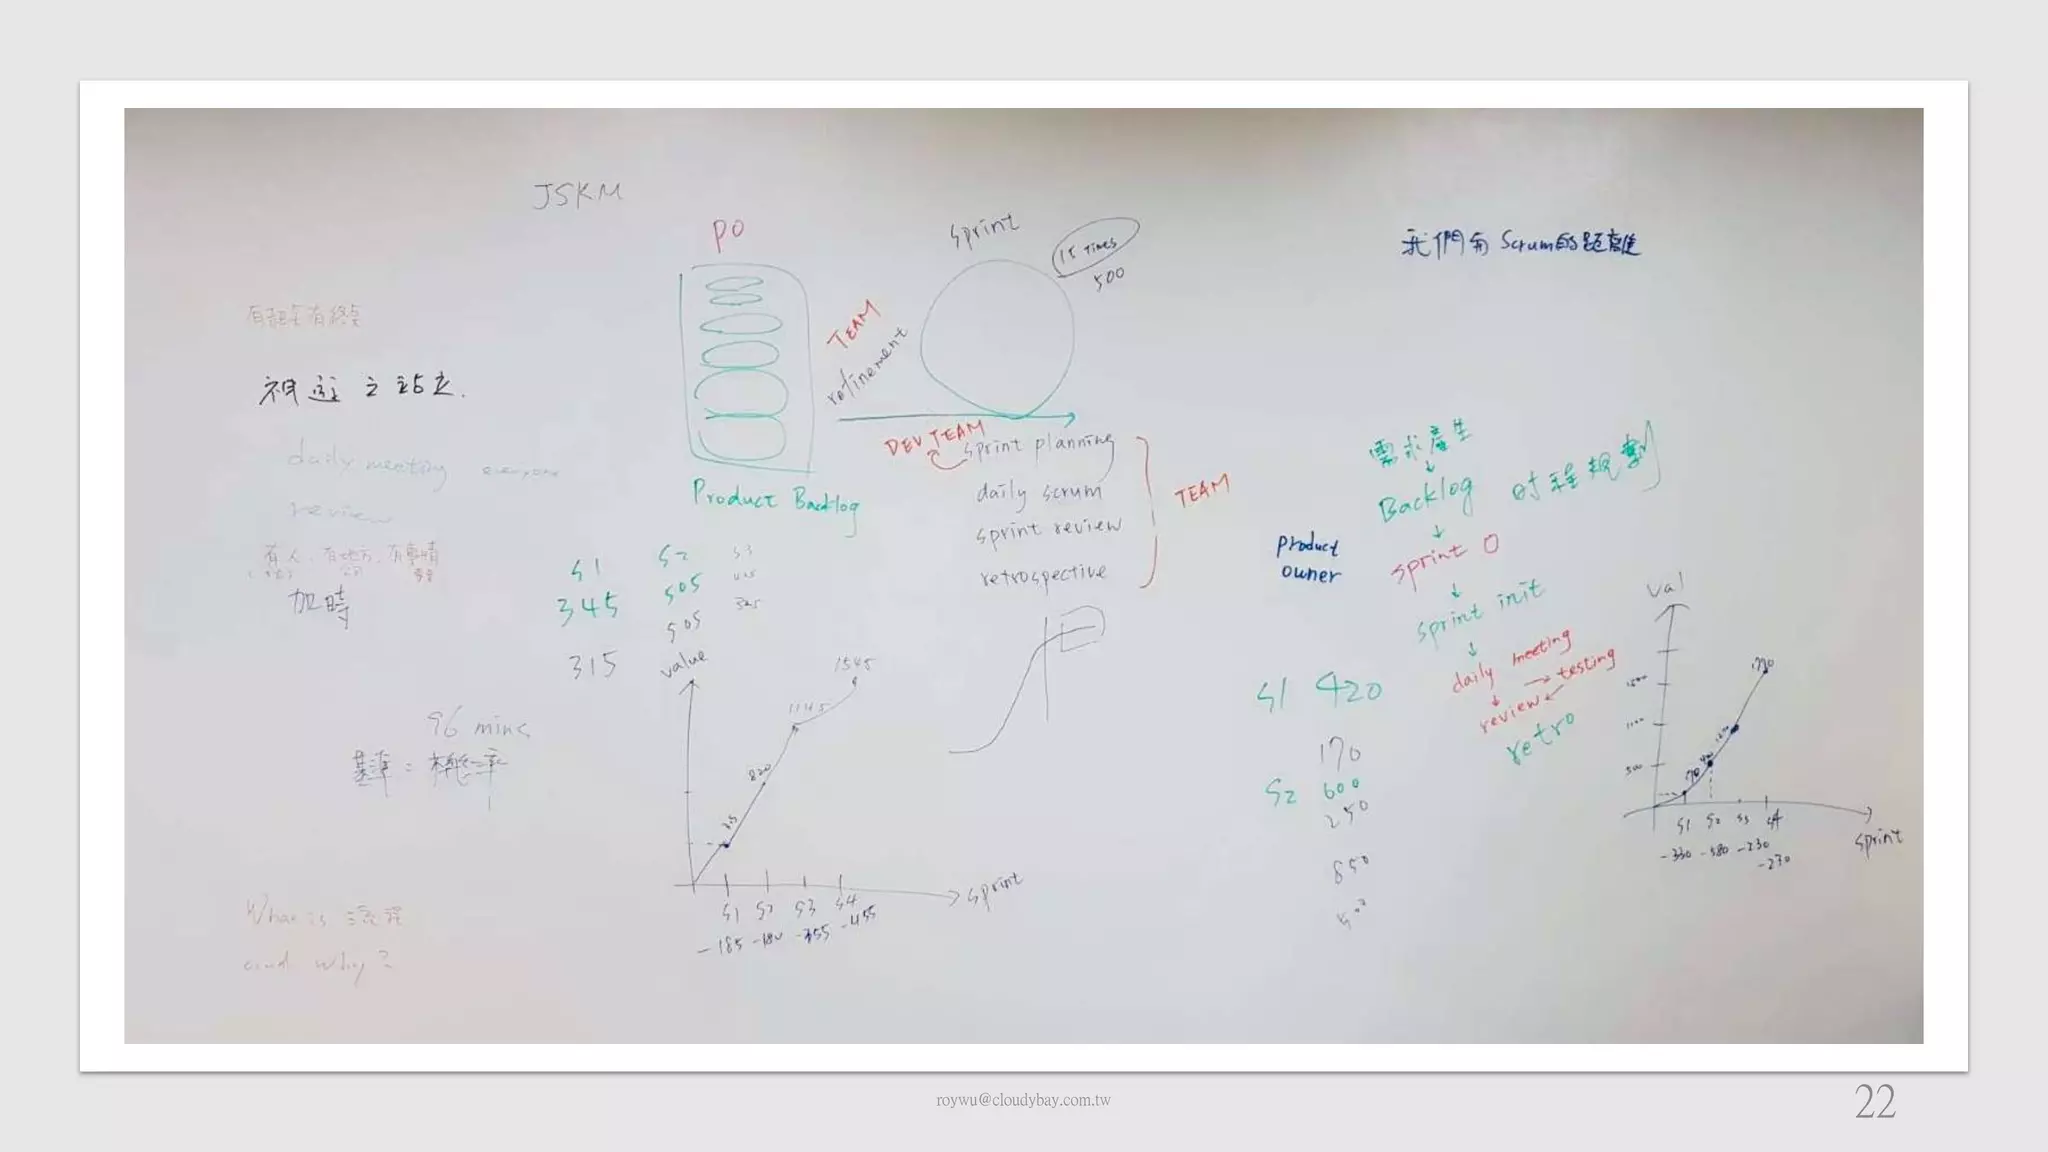 JSKM
PO
sprint
15 times
500
我們與Scrum的距離
有起點有終點
TEAM
refinement
DEV TEAM
sprint planning
daily scrum
sprint review
retrospective
TEAM
Product Backlog
站立
daily meeting everyone
review
有人、有地方、有事情
加時
S1
S2
S3
345
505
505
315
96 mins
基準 = 機率
value
1545
1145
820
S1 S2 S3 S4
-185 -180 -355 -455
sprint
What is
and why?
需求產生
↓
Backlog
時程規劃
↓
sprint 0
↓
sprint init
↓
daily meeting
→ testing
↓
review
retro
product
owner
S1 420
170
S2 600
250
850
val
1770
1500
1000
500
170
S1 S2 S3 S4
-330 -580 -230
-230
sprint
roywu@cloudybay.com.tw
22